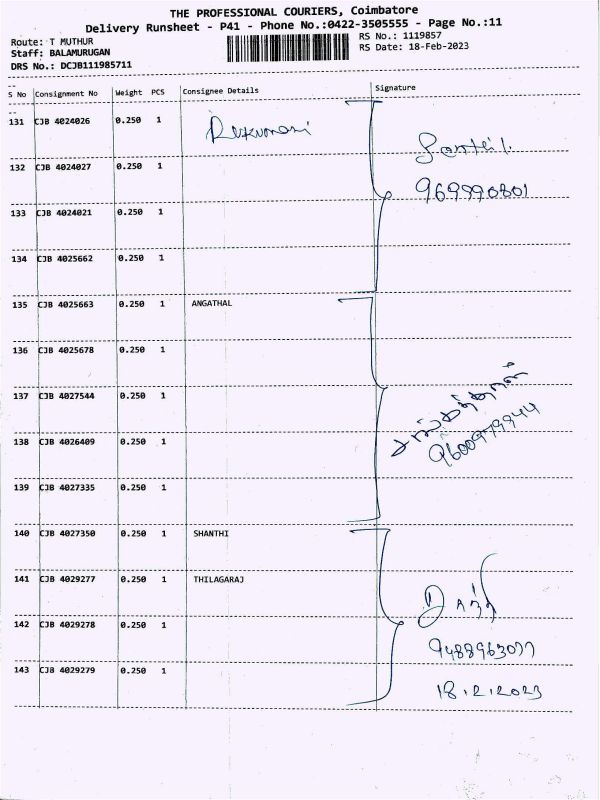 THE PROFESSIONAL COURIERS, Coimbatore
Delivery Runsheet - P41 - Phone No.:0422-3505555 - Page No.:11
Route: T MUTHUR
RS No.: 1119857
Staff: BALAMURUGAN
RS Date: 18-Feb-2023
DRS No.: DCJB111985711
S No Consignment No Weight PCS Consignee Details Signature
131 CJB 4024026 0.250 1
132 CJB 4024027 0.250 1
969990801
133 CJB 4024021 0.250 1
134 CJB 4025662 0.250 1
135 CJB 4025663 0.250 1 ANGATHAL
136 CJB 4025678 0.250 1
137 CJB 4027544 0.250 1
138 CJB 4026409 0.250 1
9600979944
139 CJB 4027335 0.250 1
140 CJB 4027350 0.250 1 SHANTHI
141 CJB 4029277 0.250 1 THILAGARAJ
142 CJB 4029278 0.250 1
143 CJB 4029279 0.250 1
18.2.2023